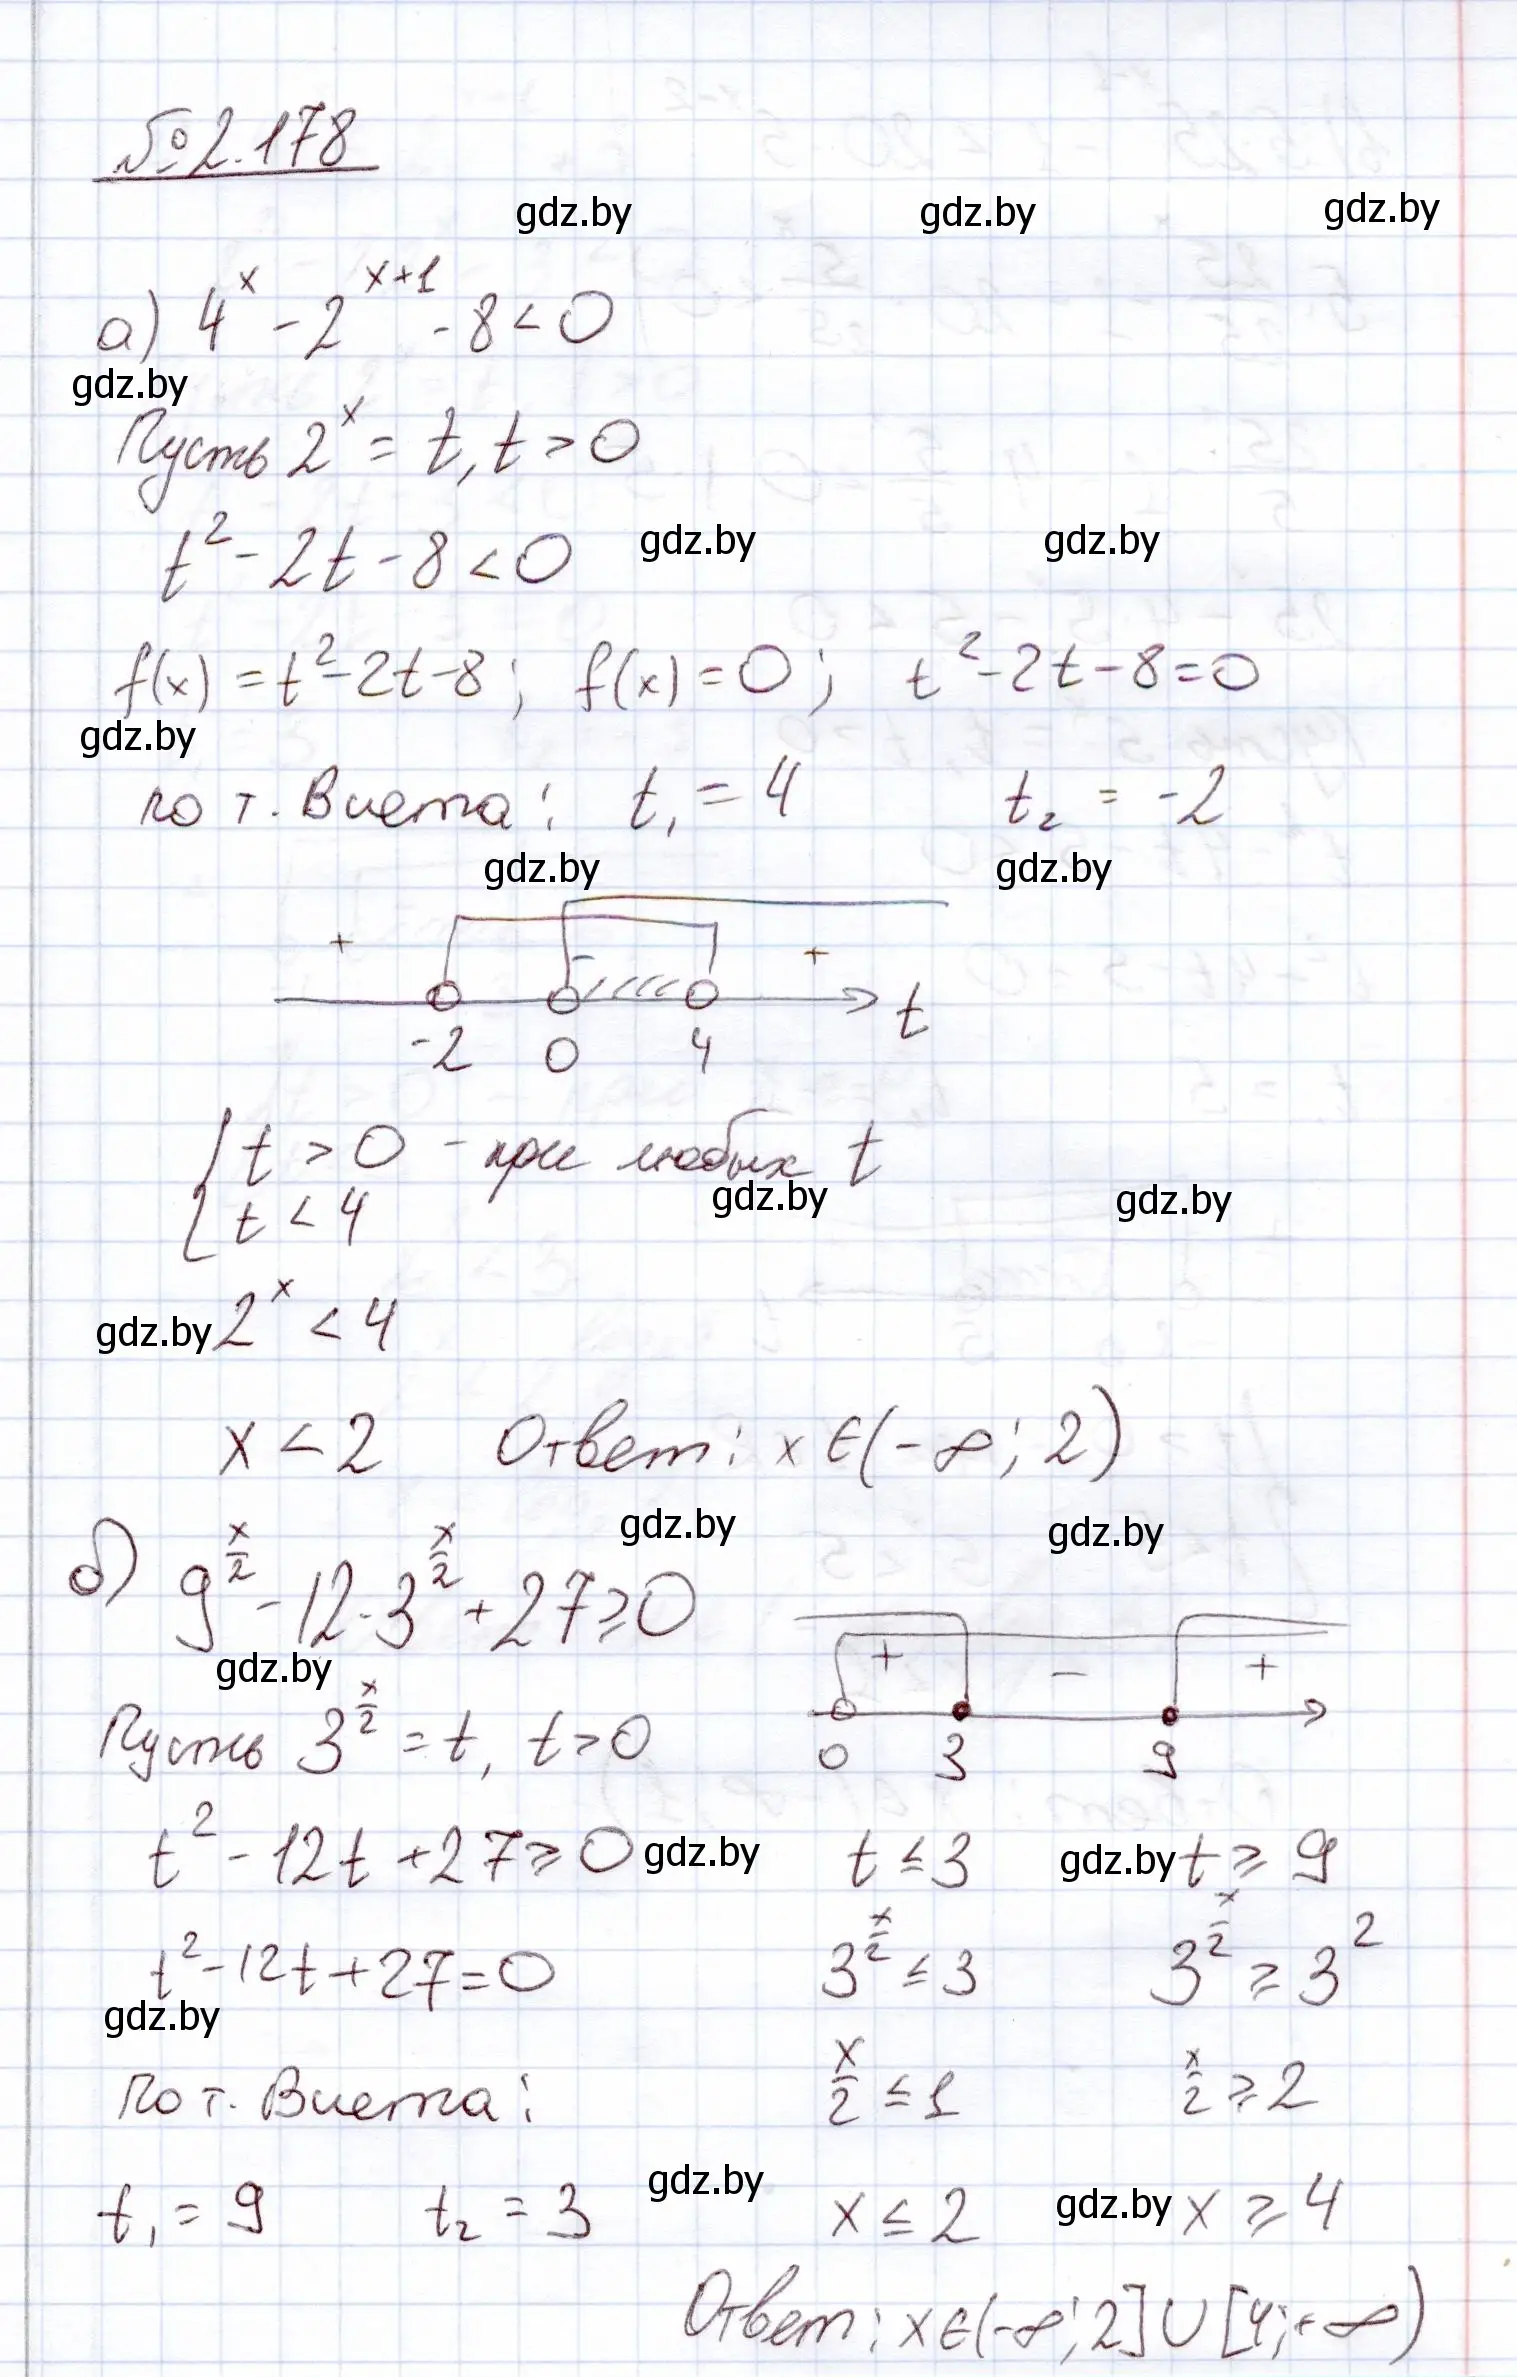 №2.178
gdz.by gdz.by gdz.by
а) 4^x - 2^{x+1} - 8 < 0
gdz.by
Пусть 2^x = t, t > 0
t² - 2t - 8 < 0 gdz.by gdz.by
f(x) = t² - 2t - 8; f(x) = 0; t² - 2t - 8 = 0
gdz.by
по т. Виета: t₁ = 4 t₂ = -2
gdz.by gdz.by
+ - +
-2 0 4 t
{ t > 0 - при любых t
gdz.by gdz.by
{ t < 4
gdz.by 2^x < 4
x < 2 Ответ: x ∈ (-∞; 2)
gdz.by gdz.by
б) 9^{x/2} - 12·3^{x/2} + 27 ≥ 0
gdz.by
+ - +
0 3 9
Пусть 3^{x/2} = t, t > 0
t² - 12t + 27 ≥ 0 gdz.by t ≤ 3 gdz.by t ≥ 9
t² - 12t + 27 = 0 3^{x/2} ≤ 3 3^{x/2} ≥ 3²
gdz.by
по т. Виета: x/2 ≤ 1 x/2 ≥ 2
t₁ = 9 t₂ = 3 gdz.by x ≤ 2 gdz.by x ≥ 4
Ответ: x ∈ (-∞; 2] ∪ [4; +∞)